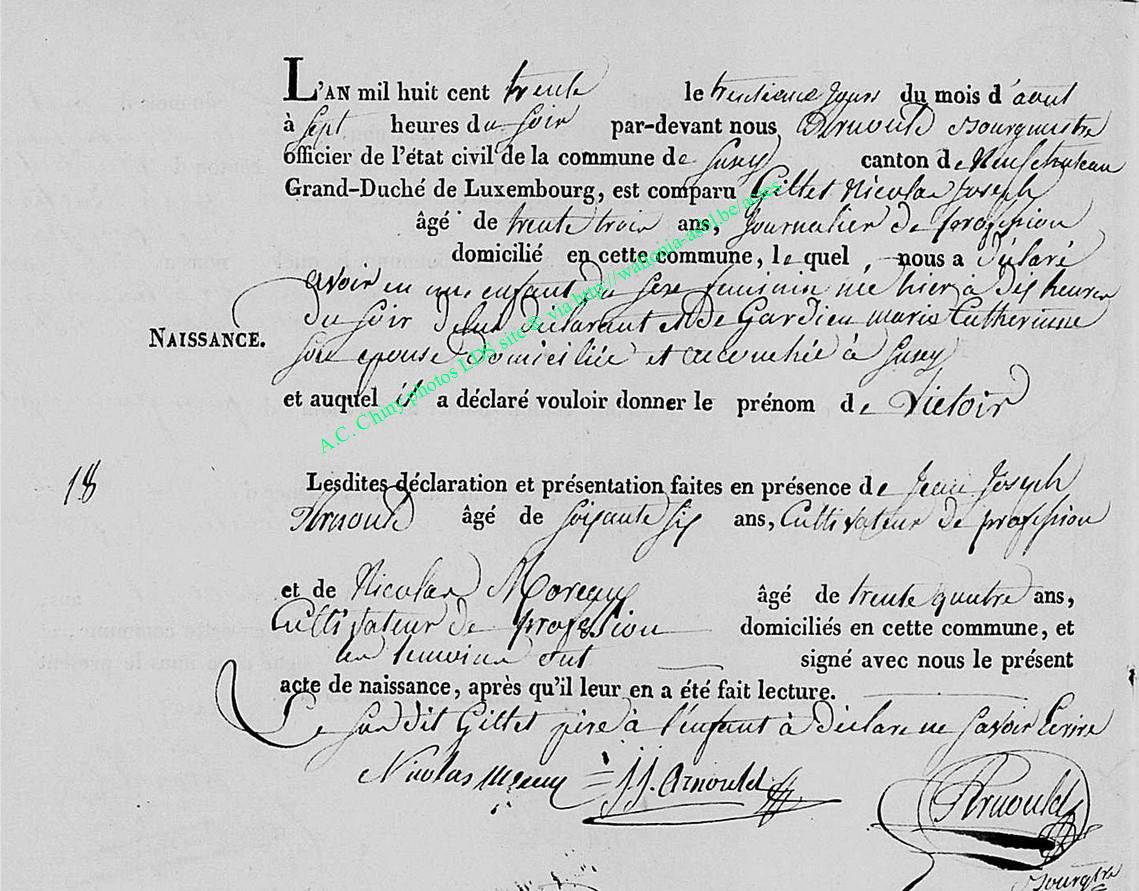 L'AN mil huit cent trente le trentieme jours du mois d'aout
à sept heures du soir par-devant nous Arnould Bourgmestre
officier de l'état civil de la commune de Suxey canton de Neufchateau
Grand-Duché de Luxembourg, est comparu Gillet Nicolas Joseph
âgé de trente trois ans, Journalier de profession
domicilié en cette commune, le quel nous a déclaré
avoir eu un enfant du sexe feminin née hier à dix heures
du soir de lui déclarant et de Gardien marie Catherinne
NAISSANCE.
son epouse domiciliée et accouchée à Suxey
et auquel il a déclaré vouloir donner le prénom de Victoir
18
Lesdites déclaration et présentation faites en présence de Jean Joseph
Arnould âgé de soixante six ans, Cultivateur de profession
et de Nicolas Moreaux âgé de trente quatre ans,
Cultivateur de profession domiciliés en cette commune, et
les temoins ont signé avec nous le présent
acte de naissance, après qu'il leur en a été fait lecture.
Le susdit Gillet père à l'enfant à déclare ne savoir Ecrire
Nicolas J.J. Arnould
Arnould
Bourgtre
A.C. Chiny photos LDS site® via http://wallonia-asbl.be/actes